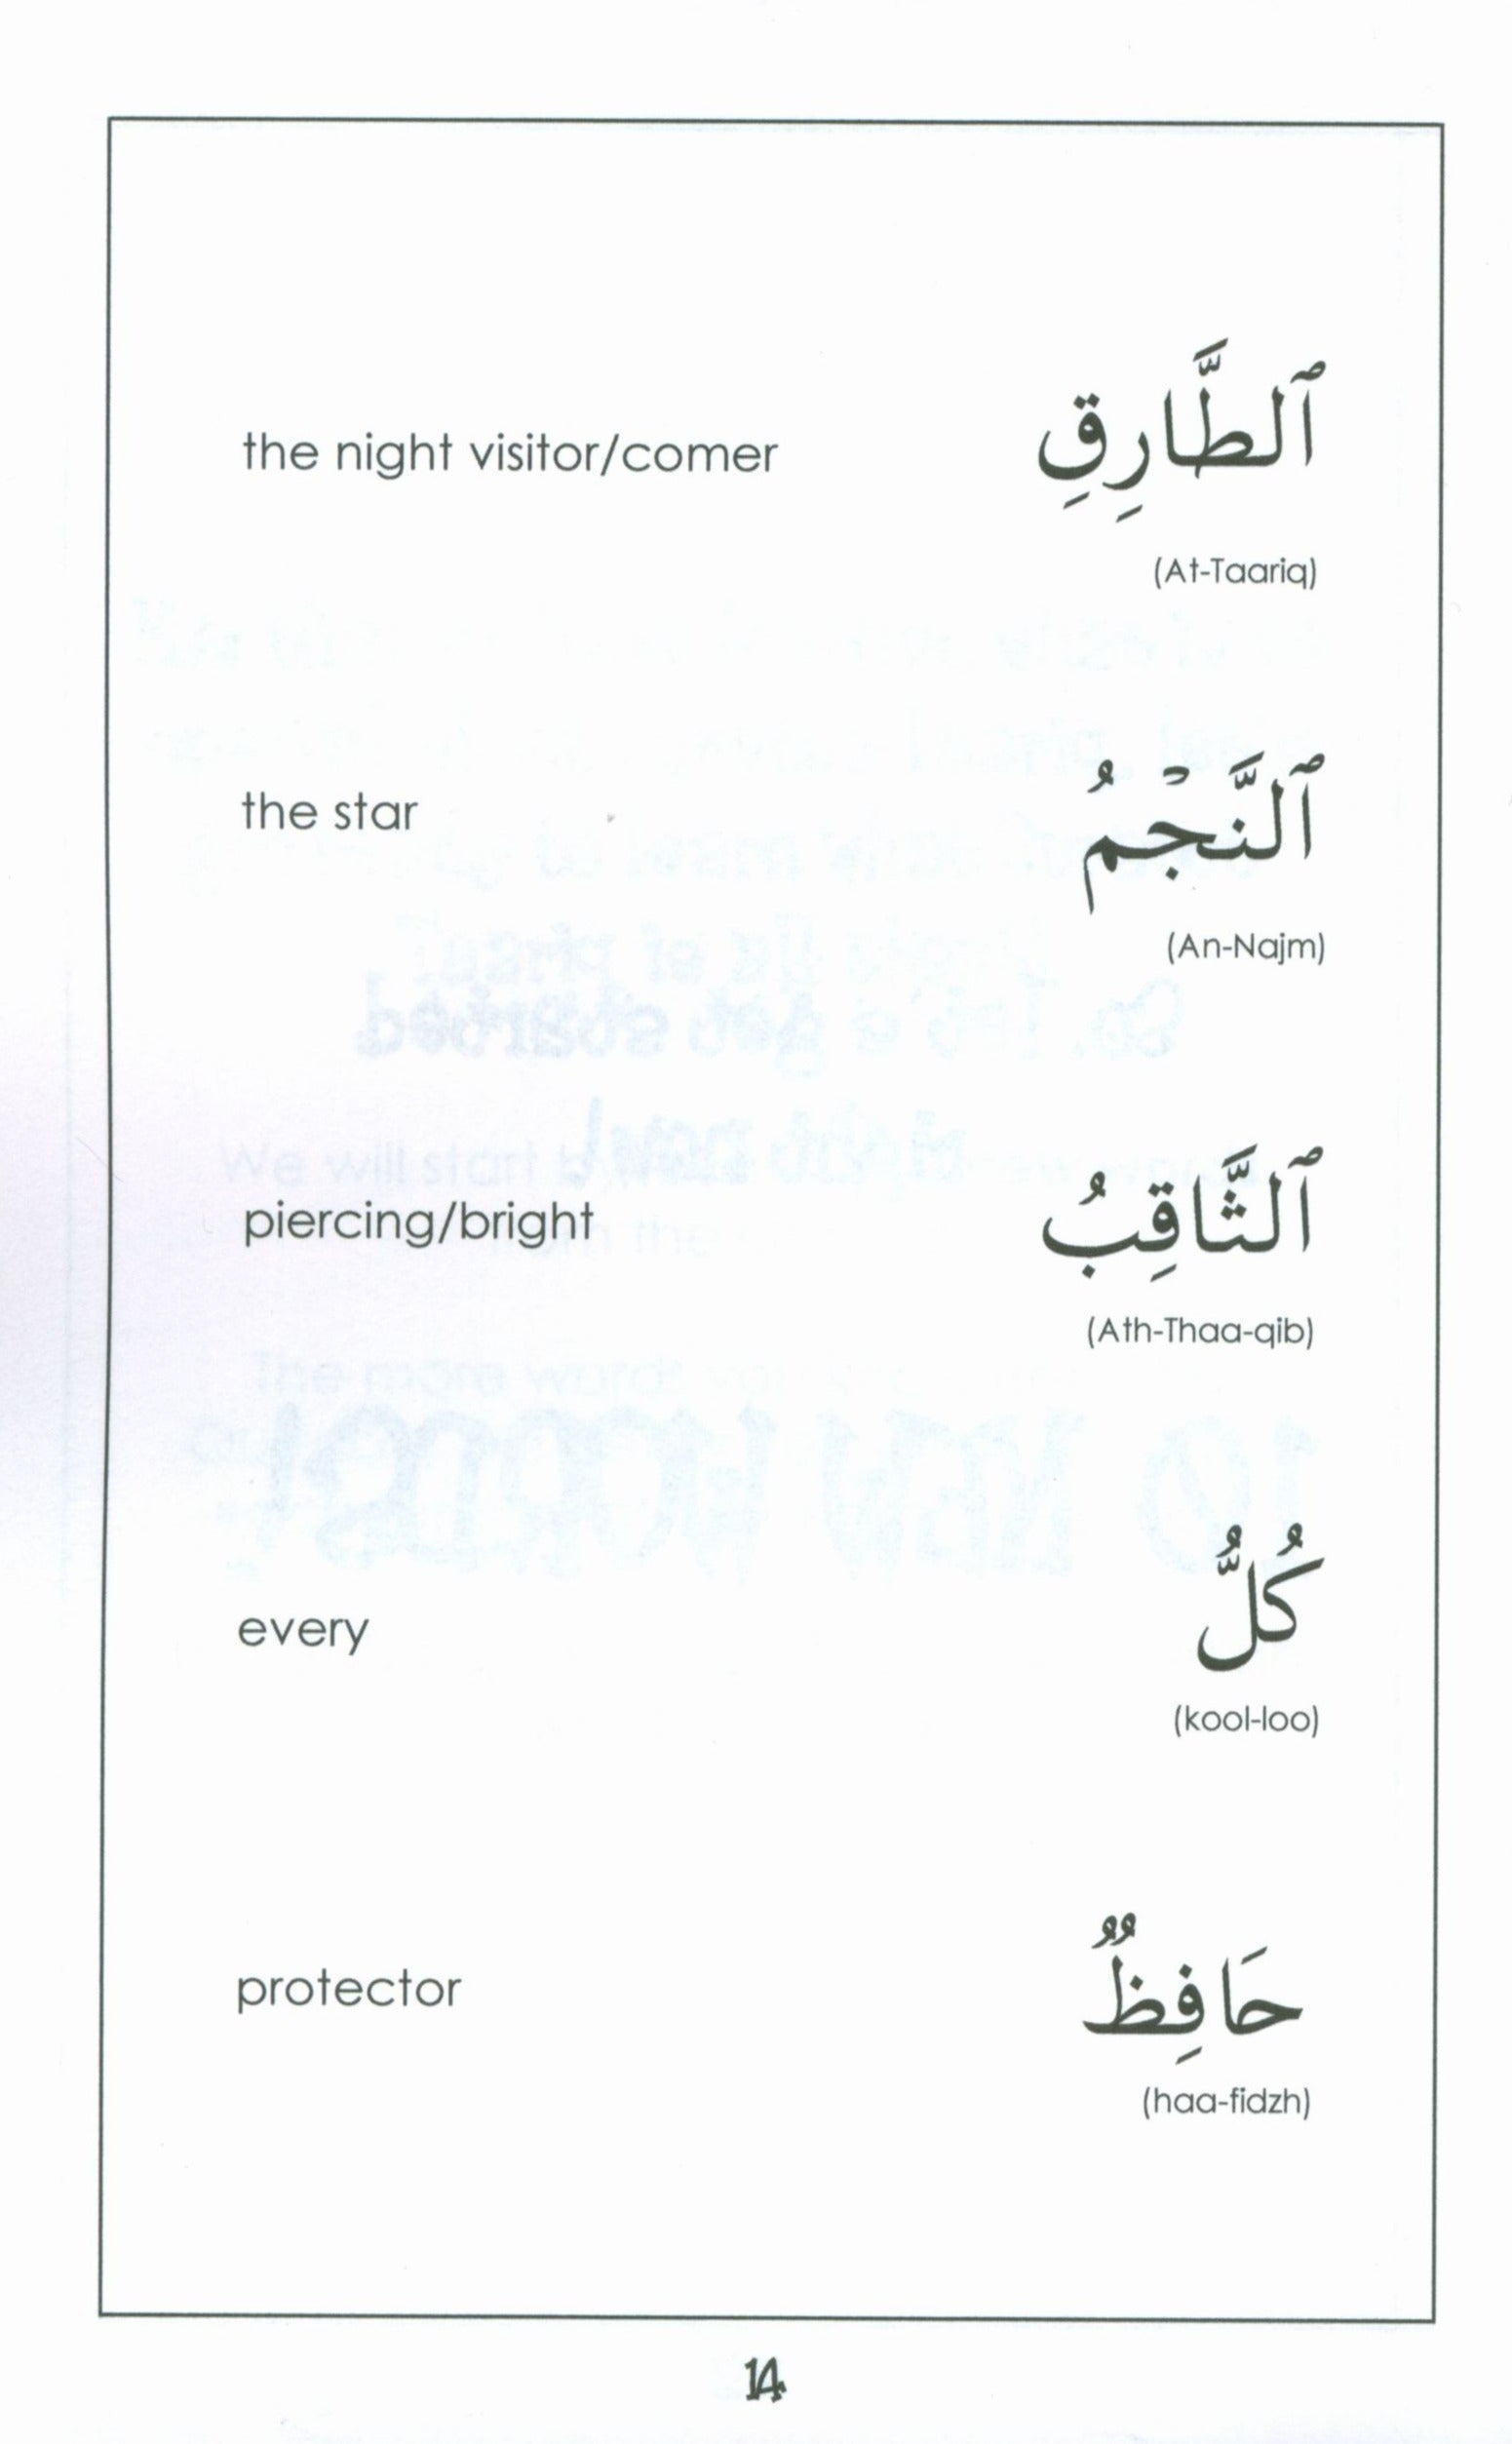 the night visitor/comer ٱلطَّارِقِ
(At-Taariq)
the star ٱلنَّجْمُ
(An-Najm)
piercing/bright ٱلثَّاقِبُ
(Ath-Thaa-qib)
every كُلُّ
(kool-loo)
protector حَافِظٌ
(haa-fidzh)
14